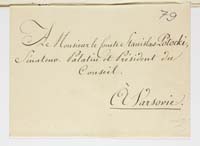 79
A Monsieur le Comte Stanislas Potocki,
Senateur Palatin et Président du
Conseil.
à Varsovie.